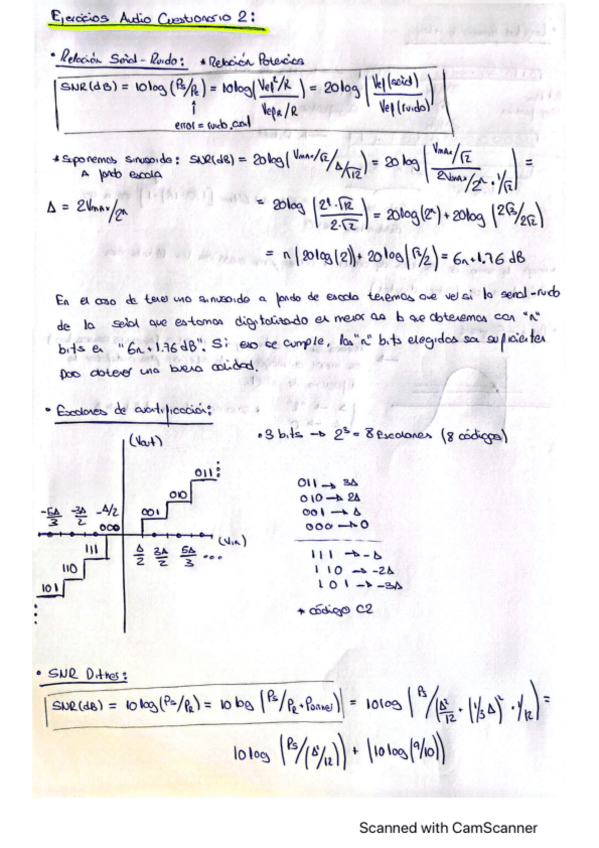 Ejercicios Audio Cuestionario 2:
• Relación Señal-Ruido: * Relación Potencias
SNR(dB) = 10log(Ps/PR) = 10log(Vef²/R / VefR/R) = 20log(Vef(señal) / Vef(ruido))
↑
error = ruido cont
* Suponemos sinusoide: SNR(dB) = 20log(Vmax/√2 / Δ/√12) = 20log(Vmax/√2 / 2Vmax/2ⁿ · 1/√12) =
A fondo escala
Δ = 2Vmax/2ⁿ = 20log(2ⁿ·√12 / 2·√2) = 20log(2ⁿ) + 20log(2√3/2√2)
= n(20log(2)) + 20log(√3/2) = 6n+1.76 dB
En el caso de tener una sinusoide a fondo de escala tenemos que ver si la señal-ruido
de la señal que estamos digitalizando es menor que la que obtenemos con "n"
bits es "6n+1.76dB". Si eso se cumple, los "n" bits elegidos son suficientes
para obtener una buena calidad.
• Escalones de cuantificación:
• 3 bits → 2³ = 8 Escalones (8 códigos)
(Vout)
011
010
001
-5Δ/3 -3Δ/2 -Δ/2
000
(Vin)
Δ/2 3Δ/2 5Δ/3 ...
111
110
101
011 → 3Δ
010 → 2Δ
001 → Δ
000 → 0
111 → -Δ
110 → -2Δ
101 → -3Δ
* código C2
• SNR Dither:
SNR(dB) = 10log(Ps/PR) = 10log(Ps/PR+Pdither) = 10log(Ps/(Δ²/12 + (1/3 Δ)² · 1/12)) =
10log(Ps/(Δ²/12)) + (10log(9/10))
Scanned with CamScanner